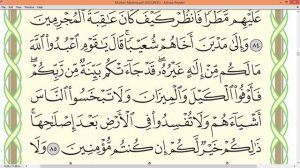 Mushaf Madinah (SECURED) - Adobe Reader
عَلَيْهِم مَّطَرًا فَٱنظُرْ كَيْفَ كَانَ عَٰقِبَةُ ٱلْمُجْرِمِينَ
٨٤ وَإِلَىٰ مَدْيَنَ أَخَاهُمْ شُعَيْبًا ۗ قَالَ يَٰقَوْمِ ٱعْبُدُوا۟ ٱللَّهَ
مَا لَكُم مِّنْ إِلَٰهٍ غَيْرُهُۥ ۖ قَدْ جَآءَتْكُم بَيِّنَةٌ مِّن رَّبِّكُمْ ۖ
فَأَوْفُوا۟ ٱلْكَيْلَ وَٱلْمِيزَانَ وَلَا تَبْخَسُوا۟ ٱلنَّاسَ
أَشْيَآءَهُمْ وَلَا تُفْسِدُوا۟ فِى ٱلْأَرْضِ بَعْدَ إِصْلَٰحِهَا ۚ
ذَٰلِكُمْ خَيْرٌ لَّكُمْ إِن كُنتُم مُّؤْمِنِينَ ٨٥ وَلَا